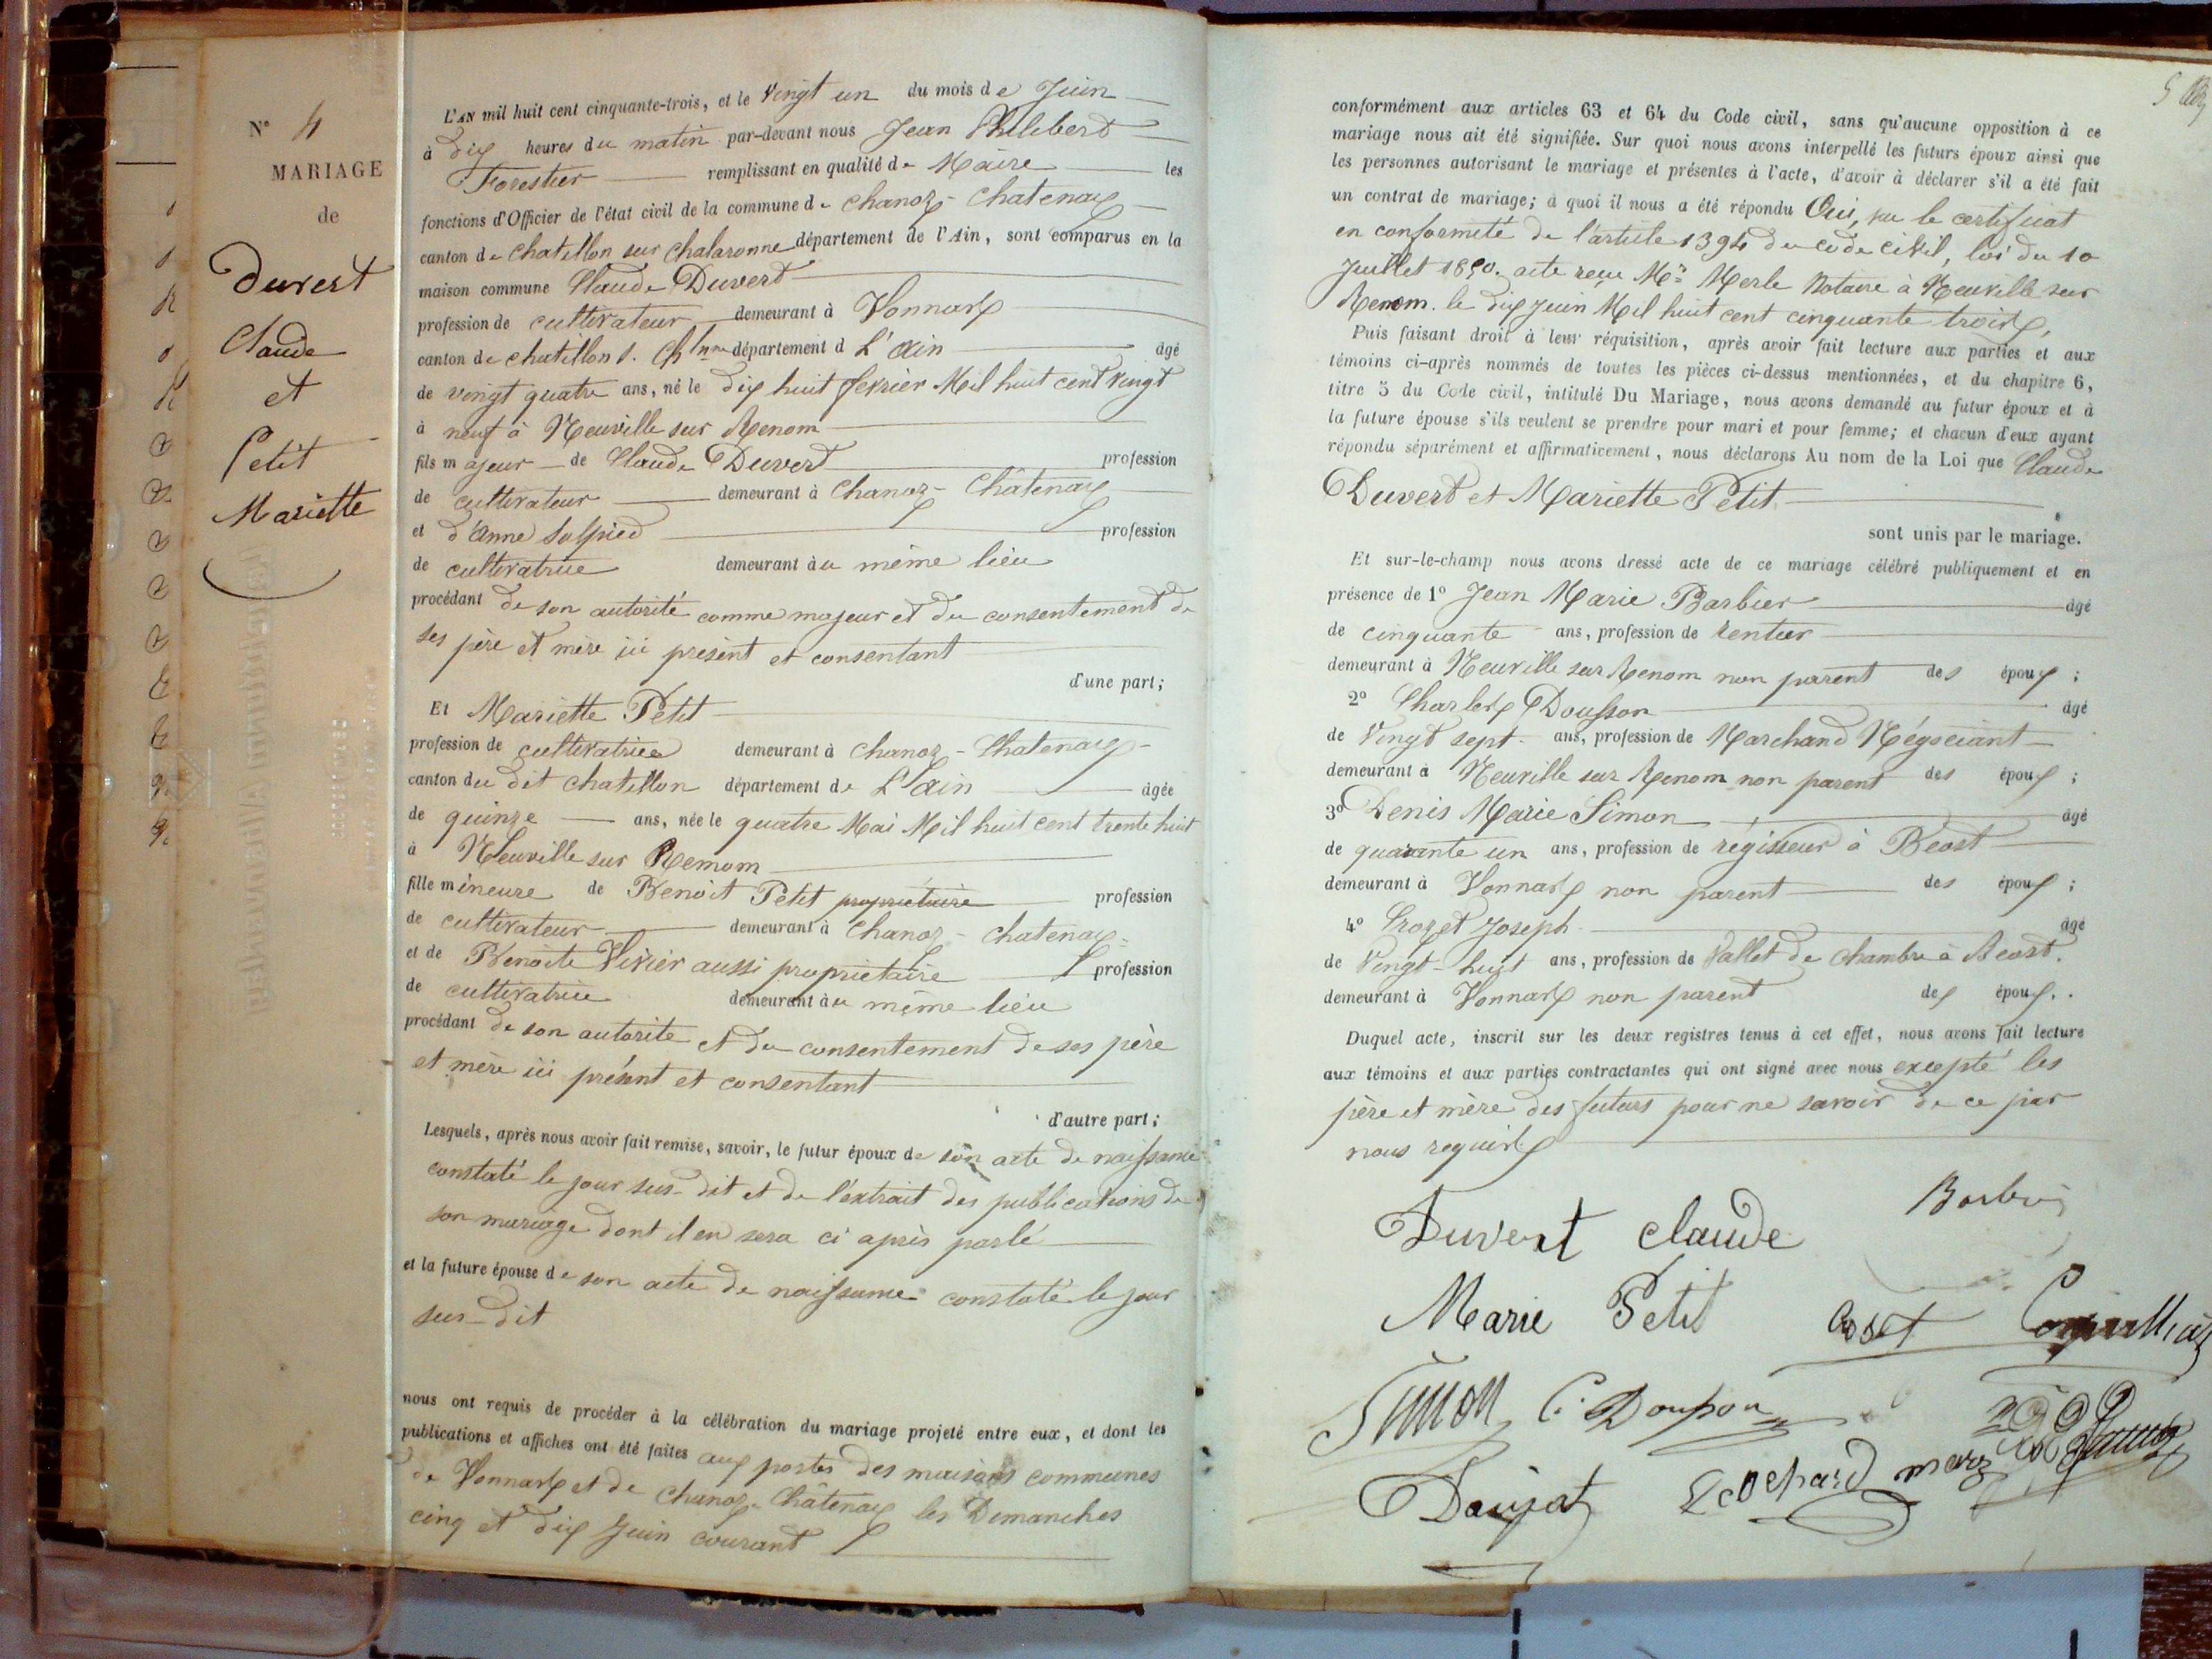 N° 4
MARIAGE
de
Duvert
Claude
et
Petit
Mariette
L'AN mil huit cent cinquante-trois, et le Vingt un du mois de Juin
à dix heures du matin par-devant nous Jean Philibert
Forestier remplissant en qualité de Maire les
fonctions d'Officier de l'état civil de la commune de Chanoz-Chatenay
canton de Chatillon sur Chalaronne département de l'Ain, sont comparus en la
maison commune Claude Duvert
profession de cultivateur demeurant à Vonnas
canton de chatillon s. Ch département d L'Ain âgé
de vingt quatre ans, né le dix huit fevrier Mil huit cent vingt
à neuf à Neuville sur Renom
fils majeur de Claude Duvert profession
de cultivateur demeurant à Chanoz-Châtenay
et d'Anne profession
de cultivatrice demeurant au même lieu
procédant de son autorité comme majeur et du consentement de
ses père et mère ici présent et consentant
d'une part;
Et Mariette Petit
profession de cultivatrice demeurant à Chanoz-Chatenay
canton du dit chatillon département de L'Ain âgée
de quinze ans, née le quatre Mai Mil huit cent trente huit
à Neuville sur Remom
fille mineure de Benoit Petit propriétaire profession
de cultivateur demeurant à Chanoz-Chatenay
et de Benoite Vivier aussi propriétaire profession
de cultivatrice demeurant au même lieu
procédant de son autorité et du consentement de ses père
et mère ici présent et consentant
d'autre part;
Lesquels, après nous avoir fait remise, savoir, le futur époux de son acte de naissance
constaté le jour sus-dit et de l'extrait des publications de
son mariage dont il en sera ci après parlé
et la future épouse de son acte de naissance constaté le jour
sus-dit
nous ont requis de procéder à la célébration du mariage projeté entre eux, et dont les
publications et affiches ont été faites aux portes des maisons communes
de Vonnas et de Chanoz-Châtenay les Dimanches
cinq et dix Juin courant
5
conformément aux articles 63 et 64 du Code civil, sans qu'aucune opposition à ce
mariage nous ait été signifiée. Sur quoi nous avons interpellé les futurs époux ainsi que
les personnes autorisant le mariage et présentes à l'acte, d'avoir à déclarer s'il a été fait
un contrat de mariage; à quoi il nous a été répondu Oui, vu le certificat
en conformité de l'article 1394 du code civil, loi du 10
Juillet 1850. acte reçu Me Merle Notaire à Neuville sur
Renom. le dix juin Mil huit cent cinquante trois,
Puis faisant droit à leur réquisition, après avoir fait lecture aux parties et aux
témoins ci-après nommés de toutes les pièces ci-dessus mentionnées, et du chapitre 6,
titre 5 du Code civil, intitulé Du Mariage, nous avons demandé au futur époux et à
la future épouse s'ils veulent se prendre pour mari et pour femme; et chacun d'eux ayant
répondu séparément et affirmativement, nous déclarons Au nom de la Loi que Claude
Duvert et Mariette Petit
sont unis par le mariage.
Et sur-le-champ nous avons dressé acte de ce mariage célébré publiquement et en
présence de 1° Jean Marie Barbier âgé
de cinquante ans, profession de Rentier
demeurant à Neuville sur Renom non parent des époux;
2° Charles Dousson âgé
de Vingt sept ans, profession de Marchand Négociant
demeurant à Neuville sur Renom non parent des époux;
3° Denis Marie Simon âgé
de quarante un ans, profession de régisseur à Béost
demeurant à Vonnas non parent des époux;
4° Joseph âgé
de Vingt-huit ans, profession de Vallet de chambre à Beost.
demeurant à Vonnas non parent des époux.
Duquel acte, inscrit sur les deux registres tenus à cet effet, nous avons fait lecture
aux témoins et aux parties contractantes qui ont signé avec nous excepté les
père et mère des futurs pour ne savoir de ce par
nous requis
Duvert Claude
Marie Petit
Simon